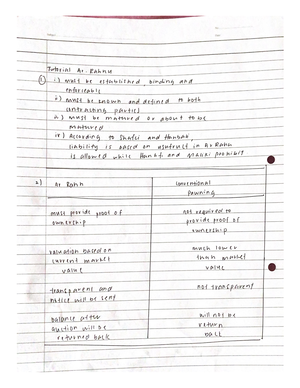 Tutorial Ar-Rahnu
1) i) must be established, binding and
enforceable
ii) must be known and defined to both
contracting parties
iii) must be matured or about to be
matured
iv) According to Shafei and Hanbali,
liability is based on usufruct in Ar Rahn
is allowed while Hanafi and Maliki prohibit
2) Ar Rahn Conventional
Pawning
must provide proof of not required to
ownership provide proof of
ownership
valuation based on much lower
current market than market
value value
transparent and not transparent
notice will be sent
balance after will not be
auction will be return
returned back back